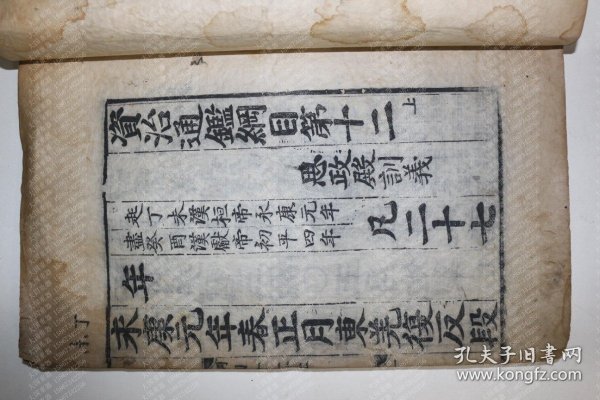 資治通鑑綱目第十二上
思政殿訓義
起丁未漢桓帝永康元年
盡癸酉漢獻帝初平四年
凡二十七
年
丁未
永康元年春正月東羌復反段
孔夫子旧书网
www.kongfz.com